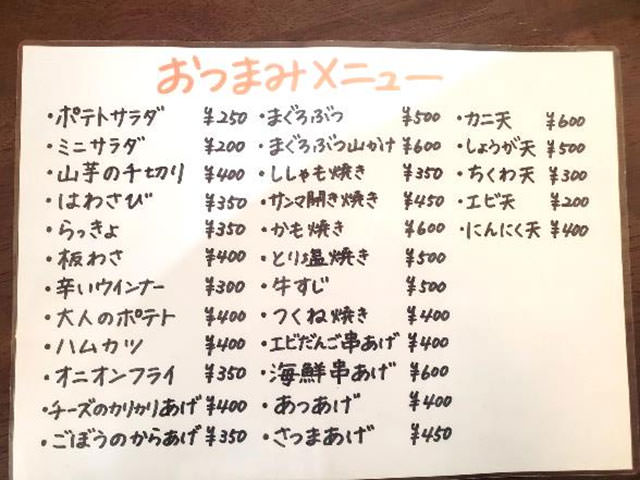 おつまみメニュー
・ポテトサラダ ¥250
・ミニサラダ ¥200
・山芋の千切り ¥400
・はわさび ¥350
・らっきょ ¥350
・板わさ ¥400
・辛いウインナー ¥300
・大人のポテト ¥400
・ハムカツ ¥400
・オニオンフライ ¥350
・チーズのカリカリあげ ¥400
・ごぼうのからあげ ¥350
・まぐろぶつ ¥500
・まぐろぶつ山かけ ¥600
・ししゃも焼き ¥350
・サンマ開き焼き ¥450
・かも焼き ¥600
・とり塩焼き ¥500
・牛すじ ¥500
・つくね焼き ¥400
・エビだんご串あげ ¥400
・海鮮串あげ ¥600
・あつあげ ¥400
・さつまあげ ¥450
・カニ天 ¥600
・しょうが天 ¥500
・ちくわ天 ¥300
・エビ天 ¥200
・にんにく天 ¥400